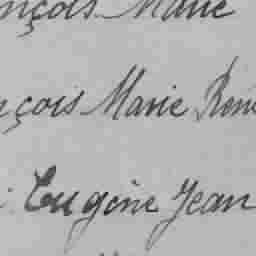 nçois Marie
nçois Marie René
Eugène Jean